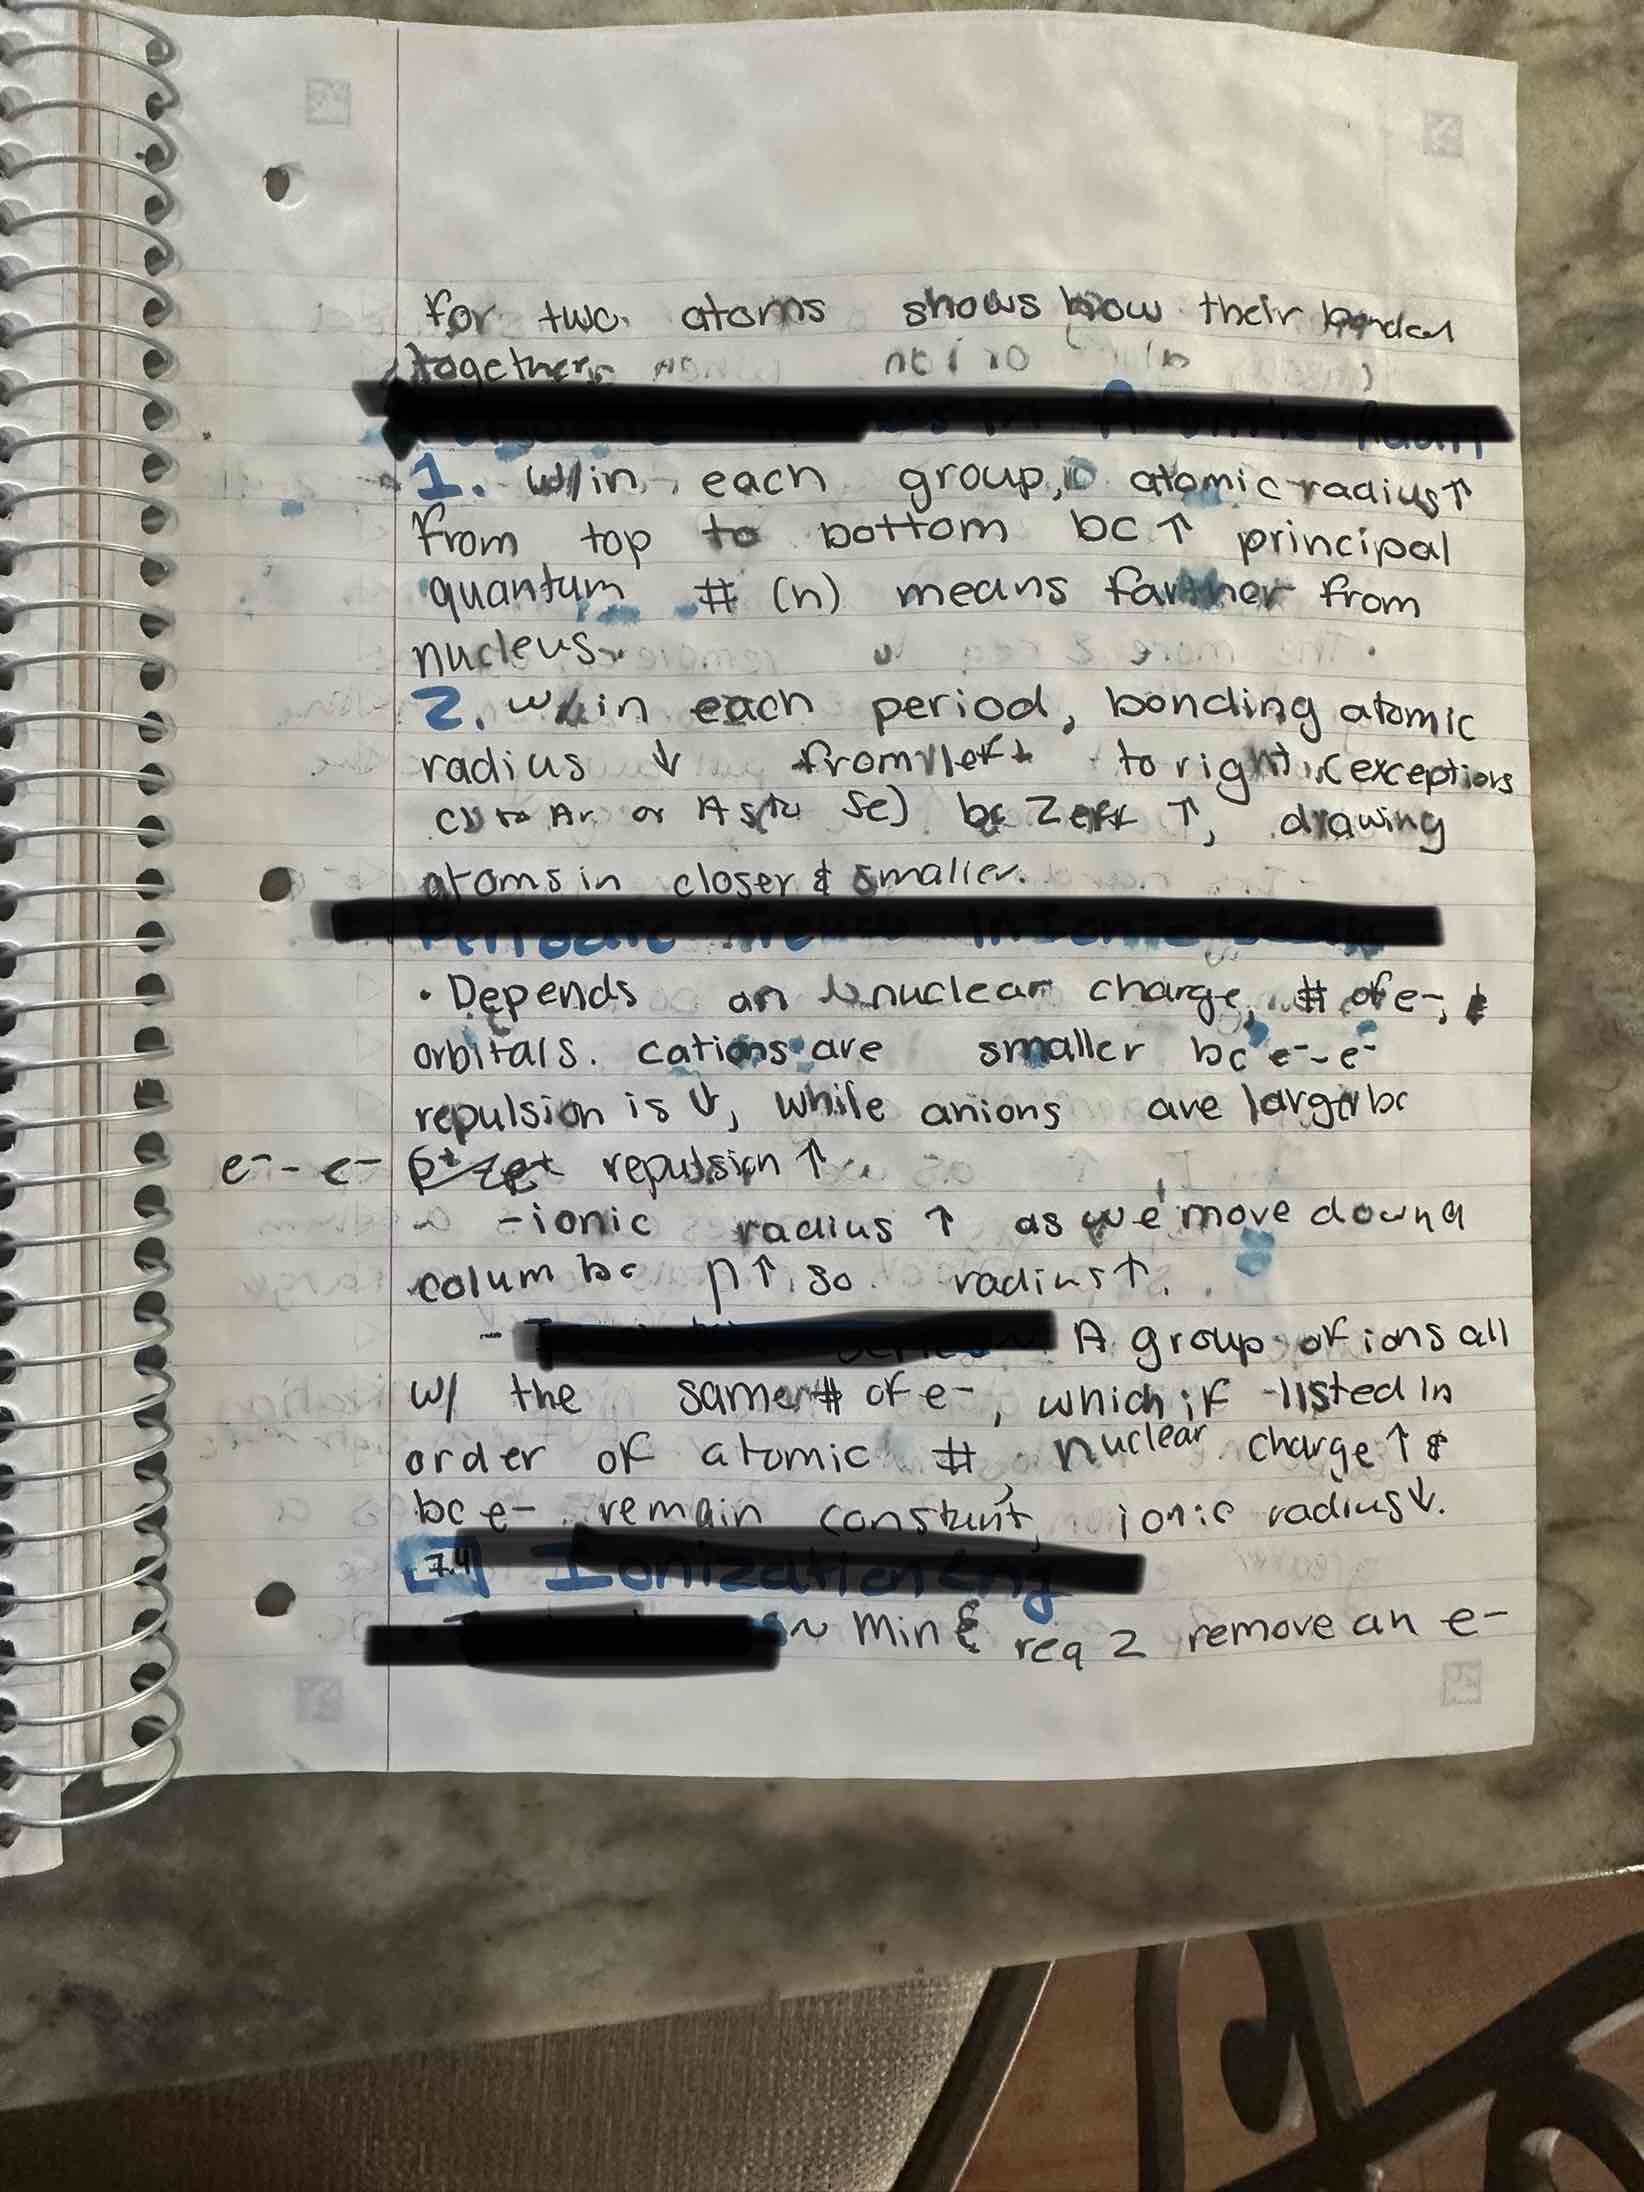 for two atoms shows how their bonded
together.
1. w/in each group, atomic radius ↑
from top to bottom bc ↑ principal
quantum # (n) means farther from
nucleus.
2. w/in each period, bonding atomic
radius ↓ from left to right (exceptions
Cl to Ar or As to Se) bc Zeff ↑, drawing
atoms in closer & smaller.
Periodic Trends in Ionic
• Depends on nuclear charge, # of e-, &
orbitals. cations are smaller bc e⁻-e⁻
repulsion is ↓, while anions are larger bc
e⁻-e⁻ repulsion ↑
-ionic radius ↑ as we move down a
colum bc n↑ so radius↑.
- A group of ions all
w/ the same # of e-, which if listed in
order of atomic #, nuclear charge ↑ &
bc e- remain constant, ionic radius↓.
7.4 Ionization Eng
~ Min E req 2 remove an e-